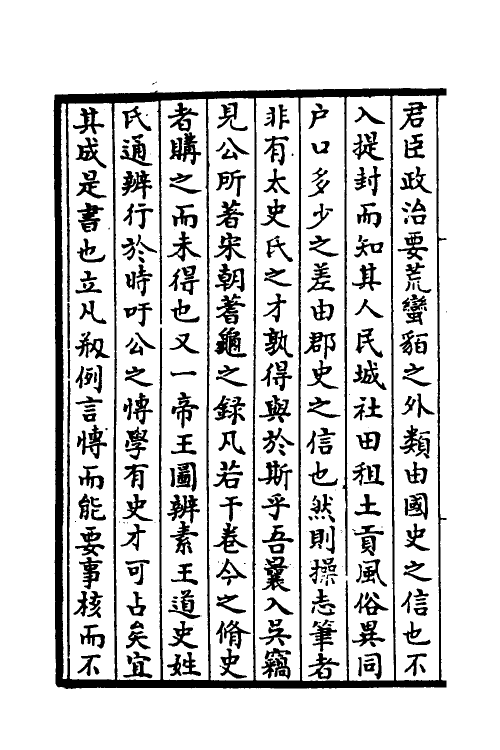 君臣政治要荒蠻貊之外類由國史之信也不
入提封而知其人民城社田租土貢風俗異同
户口多少之差由郡史之信也然則操志筆者
非有太史氏之才孰得與於斯乎吾曩入吳竊
見公所著宋朝蓍龜之録凡若干卷今之脩史
者購之而未得也又一帝王圖辨素王道史姓
氏通辨行於時吁公之愽學有史才可占矣宜
其成是書也立凡剏例言愽而能要事核而不